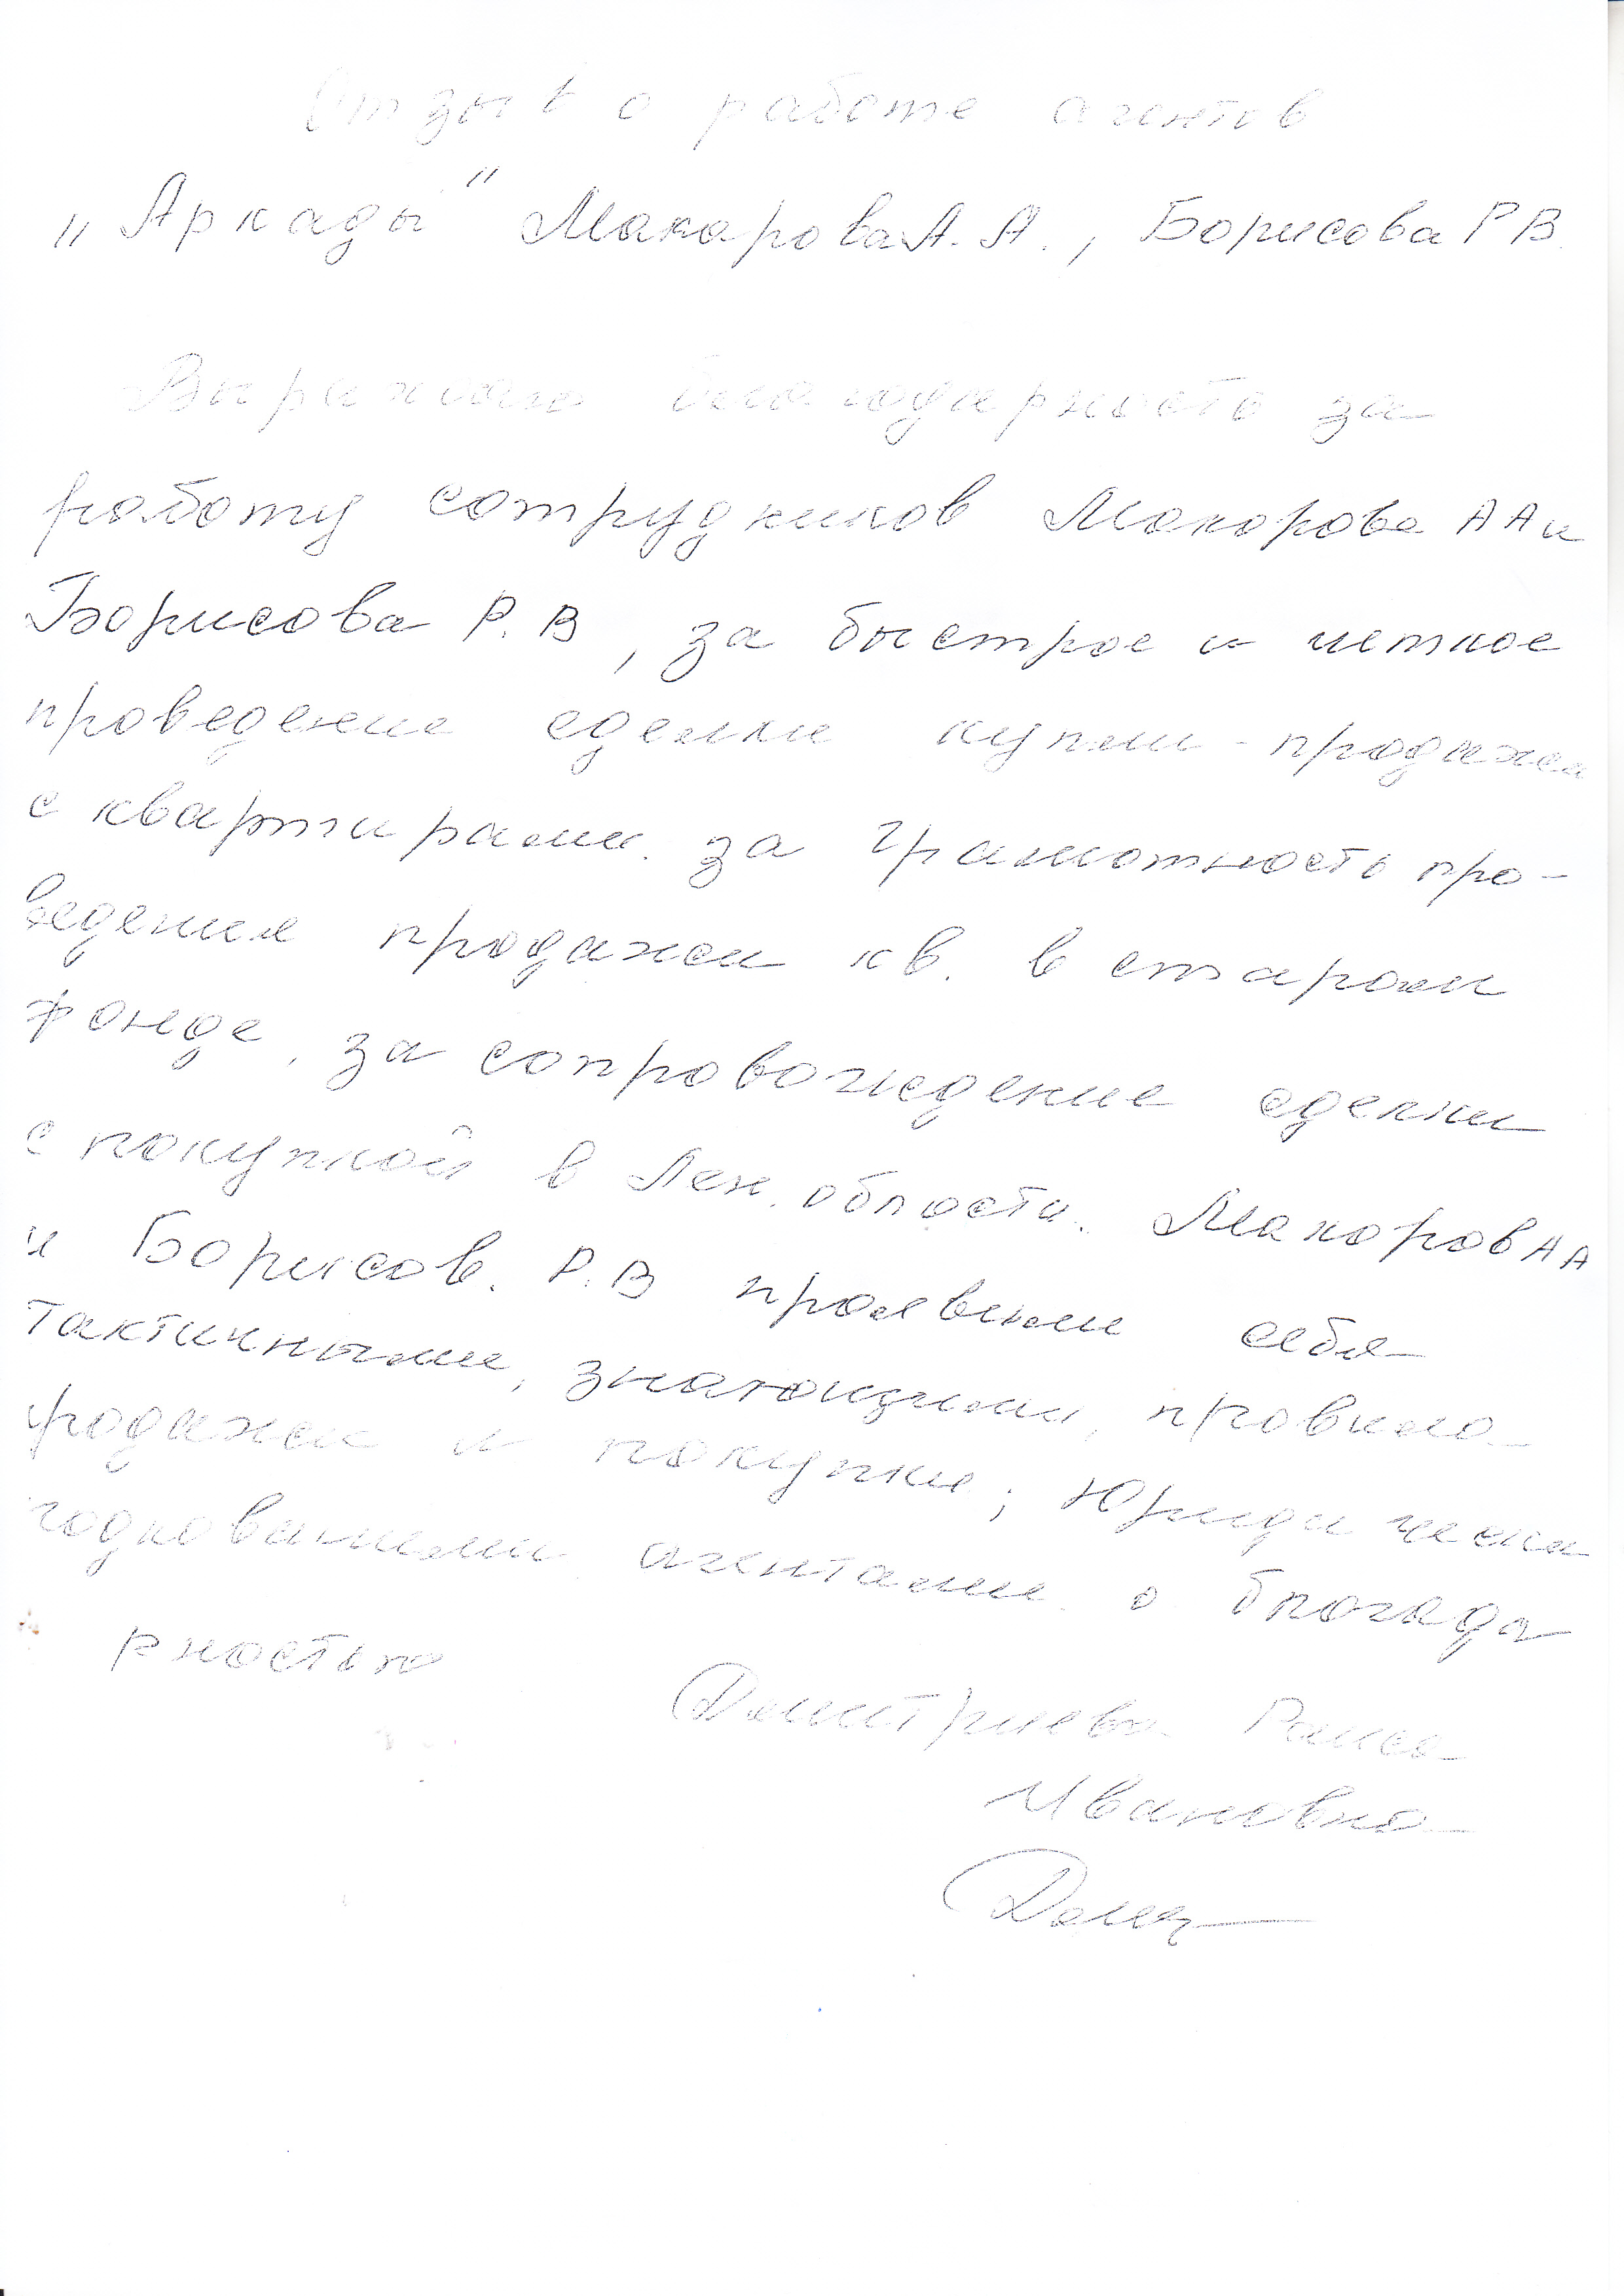 Отзыв о работе агентов
„Аркады" Макарова А. А., Борисова Р В.
Выражаю благодарность за
работу сотрудников Макарова А А и
Борисова Р. В, за быстрое и четкое
проведение сделки купли-продажи
с квартирами. за грамотность про-
ведения продажи кв. в старом
фонде, за сопровождение сделки
с покупкой в Лен. области. Макаров А А
и Борисов. Р. В проявили себя
тактичными, знающими, правила
продажи и покупки; Юридически
подкованными агентами. с благода
рностью
Дмитриева Раиса
Ивановна